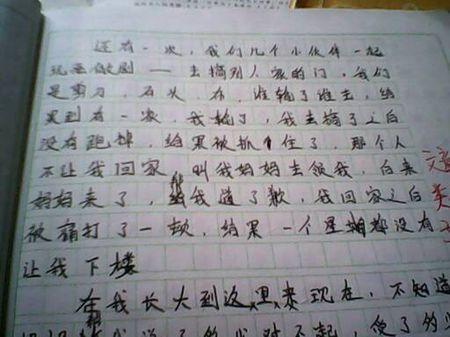 还有一次，我们几个小伙伴一起
玩恶做剧——去搞别人家的门，我们
是剪刀 石头 布，谁输了谁去，结
果到有一次，我输了，我去搞了之后
没有跑掉，结果被抓住了，那个人
不让我回家 叫我妈妈去领我，后来
妈妈来了，帮我道了歉，我回家之后
被痛打了一顿，结果一个星期都没有
让我下楼
在我长大到这里来现在，不知道
帮我道了多少对不起，使了多少